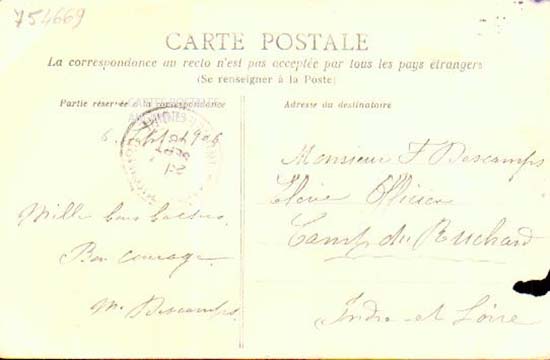 754669
CARTE POSTALE
La correspondance au recto n'est pas acceptée par tous les pays étrangers
(Se renseigner à la Poste)
Partie réservée à la correspondance
Adresse du destinataire
6 Sept 1906
Monsieur F Descamps
Elève Officier
Camp du Ruchard
Indre et Loire
Mille bons baisers
Bon courage
M. Descamps